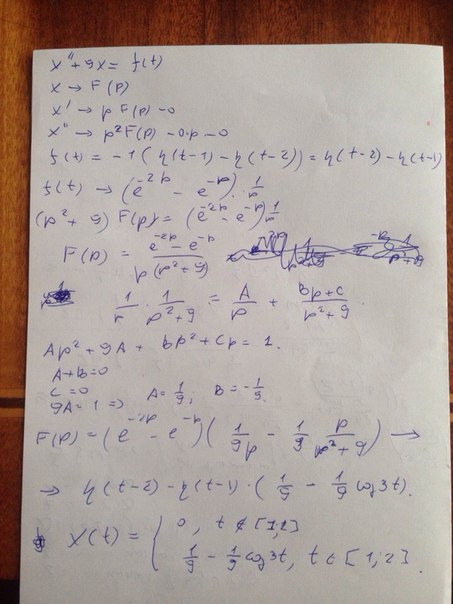 x'' + 9x = f(t)
x → F(p)
x' → p F(p) - 0
x'' → p²F(p) - 0·p - 0
f(t) = -1(η(t-1) - η(t-2)) = η(t-2) - η(t-1)
f(t) → (e^{-2p} - e^{-p}) · 1/p
(p² + 9) F(p) = (e^{-2p} - e^{-p}) 1/p
F(p) = (e^{-2p} - e^{-p}) / (p(p² + 9))
1/p · 1/(p² + 9) = A/p + (Bp + C)/(p² + 9)
Ap² + 9A + Bp² + Cp = 1.
A + B = 0
C = 0
9A = 1 ⇒ A = 1/9, B = -1/9.
F(p) = (e^{-2p} - e^{-p}) (1/(9p) - 1/9 p/(p² + 9)) →
→ η(t-2) - η(t-1) · (1/9 - 1/9 cos 3t).
x(t) = { 0, t ∉ [1,2]
1/9 - 1/9 cos 3t, t ∈ [1; 2].